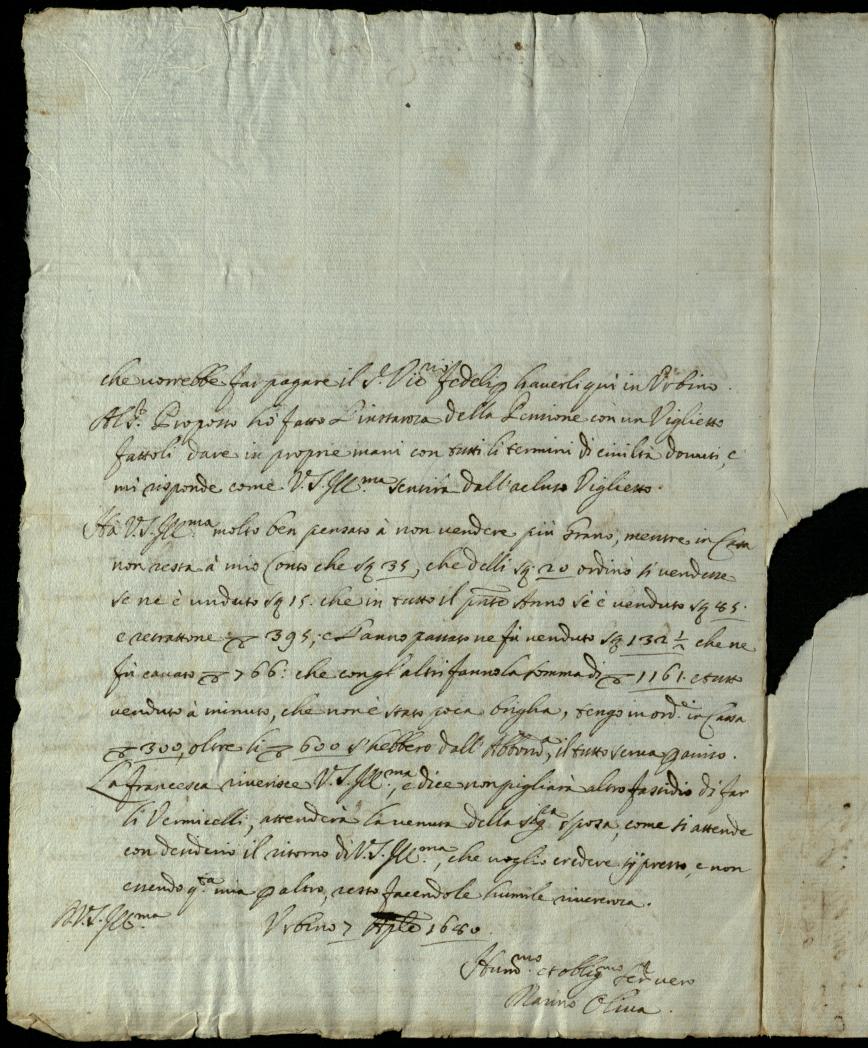 che vorrebbe far pagare il S.r Vic.rio Fedeli p haverli quì in Urbino.
Al S.r Proposto hò fatto l'instanza della Pensione con un Viglietto
fattoli dare in proprie mani con tutti li termini di civiltà douuti, e
mi risponde come V.S.Ill.ma sentirà dall'acluso Viglietto.
Hà V.S.Ill.ma molto ben pensato à non vendere più Grano, mentre in Casa
non resta à mio Conto che sq 35, che delli sq. 20 ordinò si vendesse
se ne è venduto sq 15. che in tutto il pnte Anno sè è venduto sq 85.
e retrattone 395; e l'anno passato ne fù venduto sq 132 1/2 che ne
fù cavato 766: che con gl'altri fanno la somma di 1161. e tutto
venduto à minuto, che non è stato poca briglia, tengo in ord.e in Cassa
300, oltre li 600 s'hebbero dall'Abbond.a, il tutto serva p aviso.
La Francesca riverisce V.S.Ill.ma, e dice non pigliarà altro fastidio di far
li Vermicelli, attenderà la venuta della Sig.a sposa, come si attende
con desiderio il ritorno di V.S.Ill.ma, che voglio credere sij presto, e non
essendo q.ta mia p altro, resto facendole humile riverenza.
D.V.S.Ill.ma Urbino 7 Aple 1680.
Hum.mo et oblig.mo Ser.re vero
Marino Oliva.